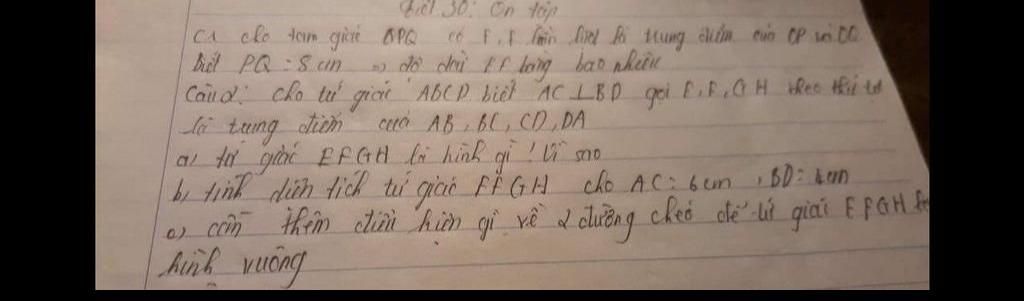 Tiết 30: Ôn tập
C1 cho tam giác OPQ có E, F lần lượt là trung điểm của OP và OQ
biết PQ = 8 cm => độ dài EF bằng bao nhiêu
Câu 2: cho tứ giác ABCD biết AC ⊥ BD gọi E, F, G H theo thứ tự
là trung điểm của AB, BC, CD, DA
a) tứ giác EFGH là hình gì ! Vì sao
b) tính diện tích tứ giác EFGH cho AC = 6 cm, BD = 4 cm
c) cần thêm điều kiện gì về 2 đường chéo để tứ giác EFGH là
hình vuông